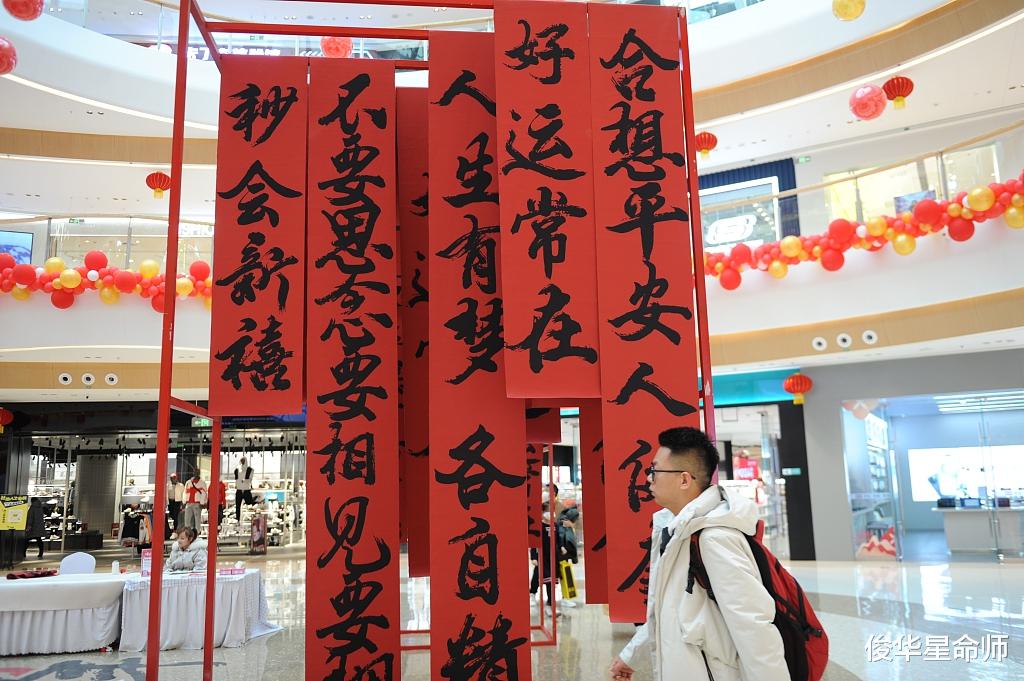 秒会新禧
不要思念要相见要
人生有梦各自精
好运常在
合想平安人
俊华星命师